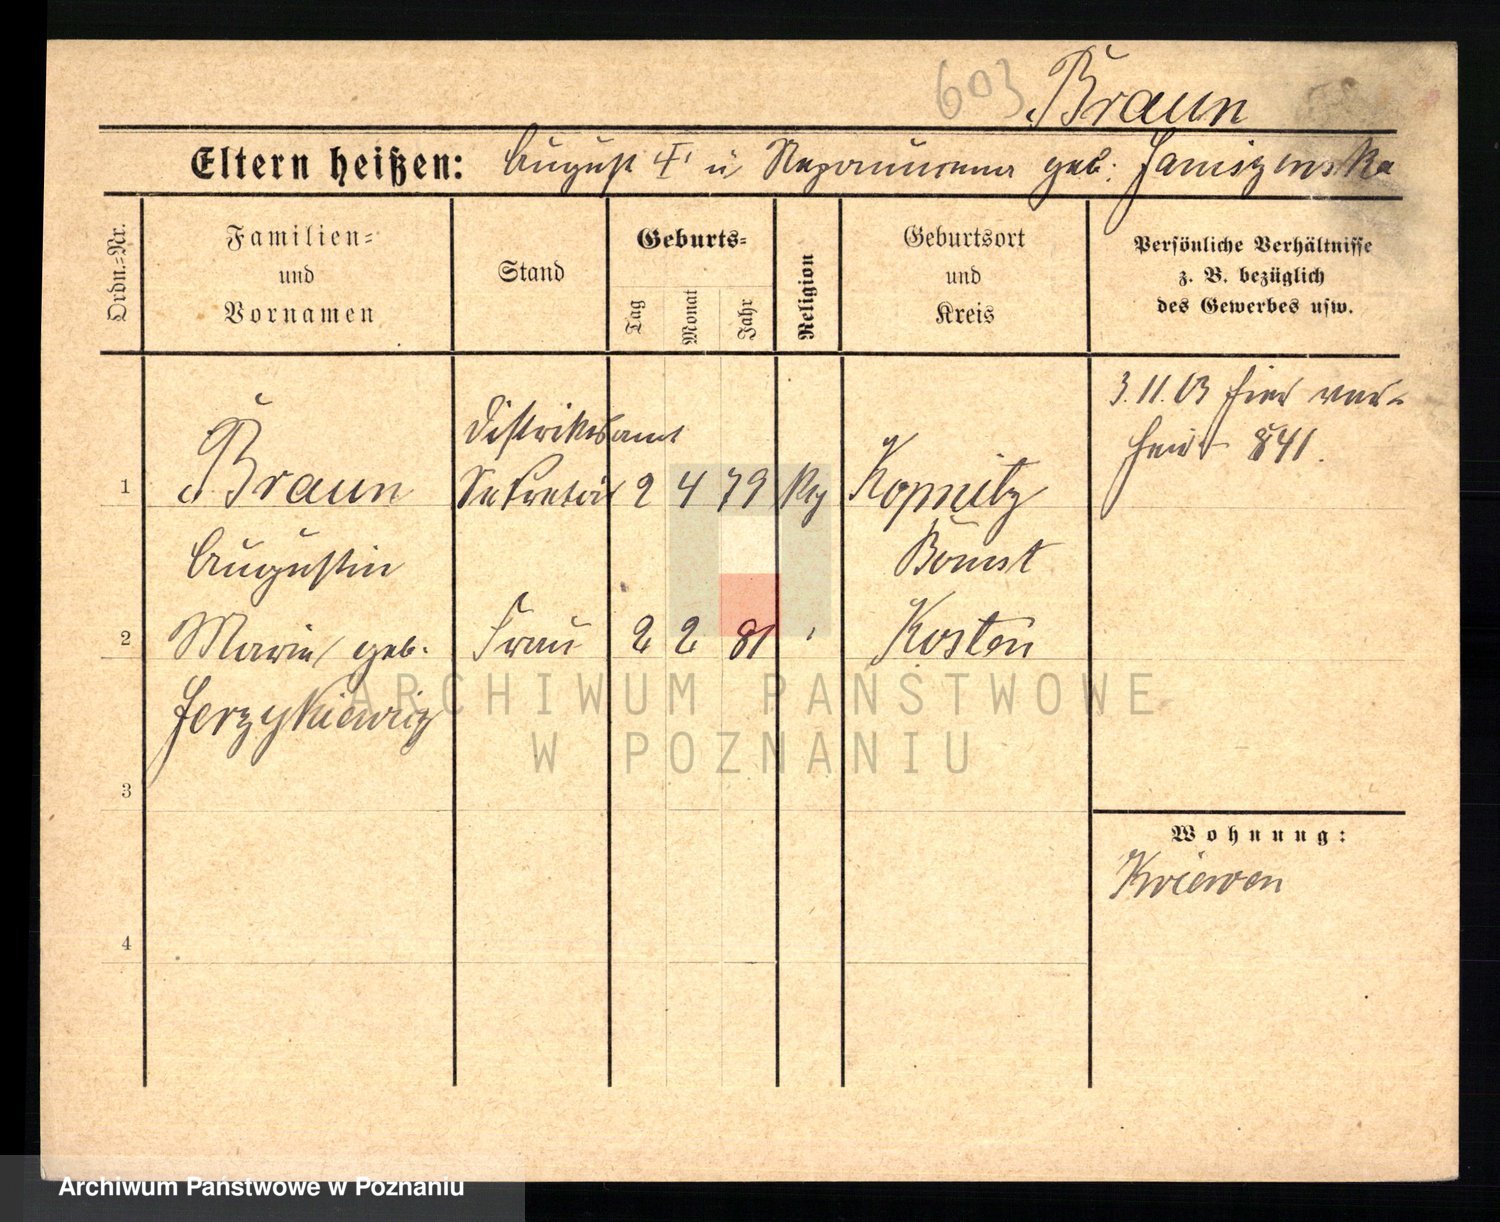 603 Braun
Eltern heißen: August † u Nepomucena geb. Janiszewska
Ordn.=Nr.
Familien=
und
Vornamen
Stand
Geburts=
Tag
Monat
Jahr
Religion
Geburtsort
und
Kreis
Persönliche Verhältnisse
z. B. bezüglich
des Gewerbes usw.
3.11.03 hier ver-
heir. 841.
Distriktsamt
1 Braun Sekretär 2 4 79 Kopnitz
Augustin Bomst
2 Marie geb. Frau 2 2 81 Kosten
Jerzykiewicz
ARCHIWUM PAŃSTWOWE
W POZNANIU
3
Wohnung:
Kriewen
4
Archiwum Państwowe w Poznaniu